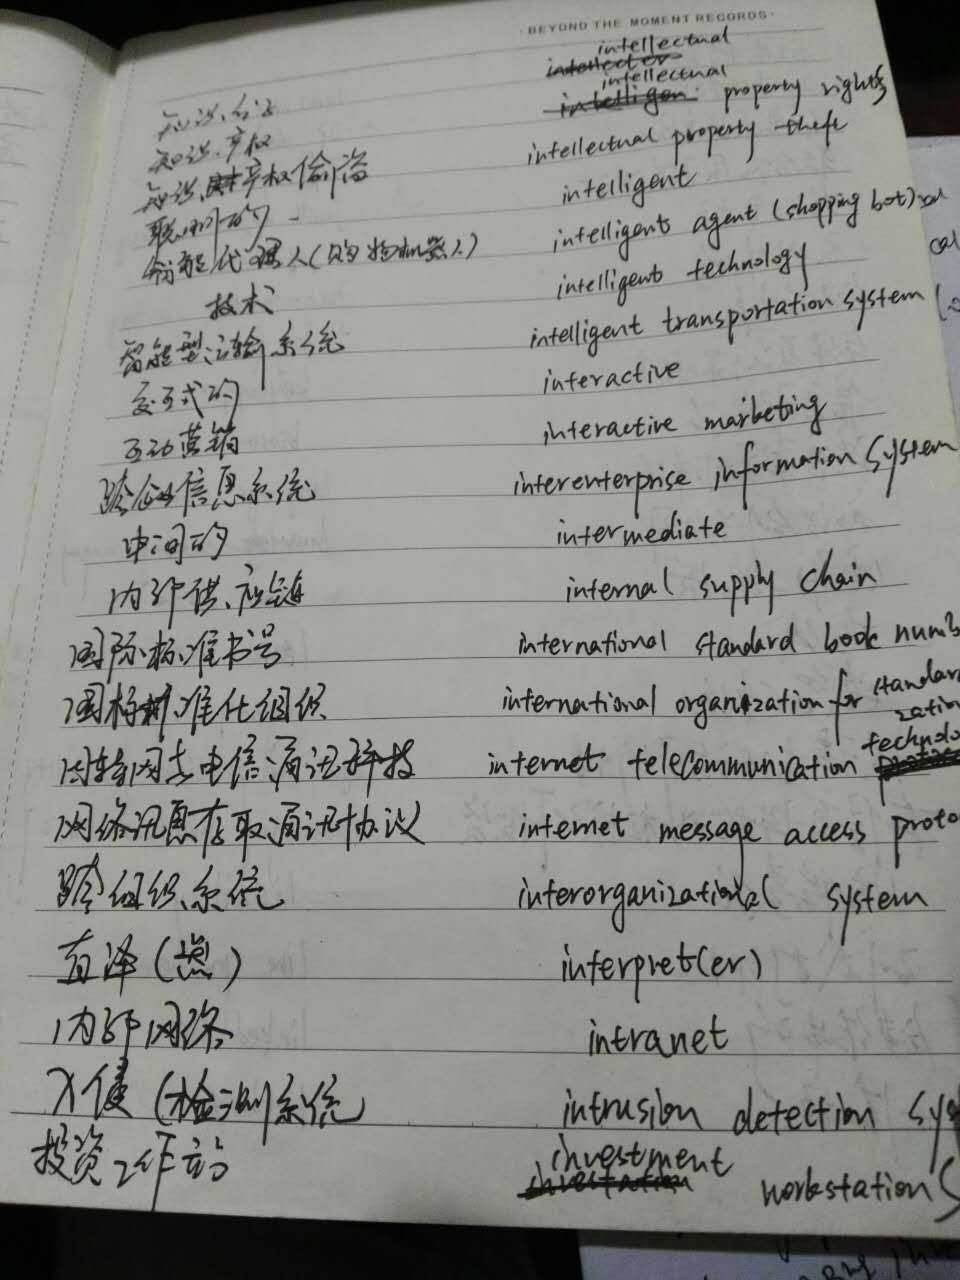 BEYOND THE MOMENT RECORDS
intellectual
知识产权 intellectual property rights
知识产权偷盗 intellectual property theft
聪明的 intelligent
智能代理人(购物机器人) intelligent agent (shopping bot)
技术 intelligent technology
智能型运输系统 intelligent transportation system
交互式的 interactive
互动营销 interactive marketing
跨企业信息系统 interenterprise information system
中间的 intermediate
内部供应链 internal supply chain
国际标准书号 international standard book numb
国标准化组织 international organization for standar
zation
因特网电信通讯科技 internet telecommunication technolo
网络讯息存取通讯协议 internet message access proto
跨组织系统 interorganizational system
直译(器) interpret(er)
内部网络 intranet
入侵(检测系统 intrusion detection sys
投资工作站 investment workstation